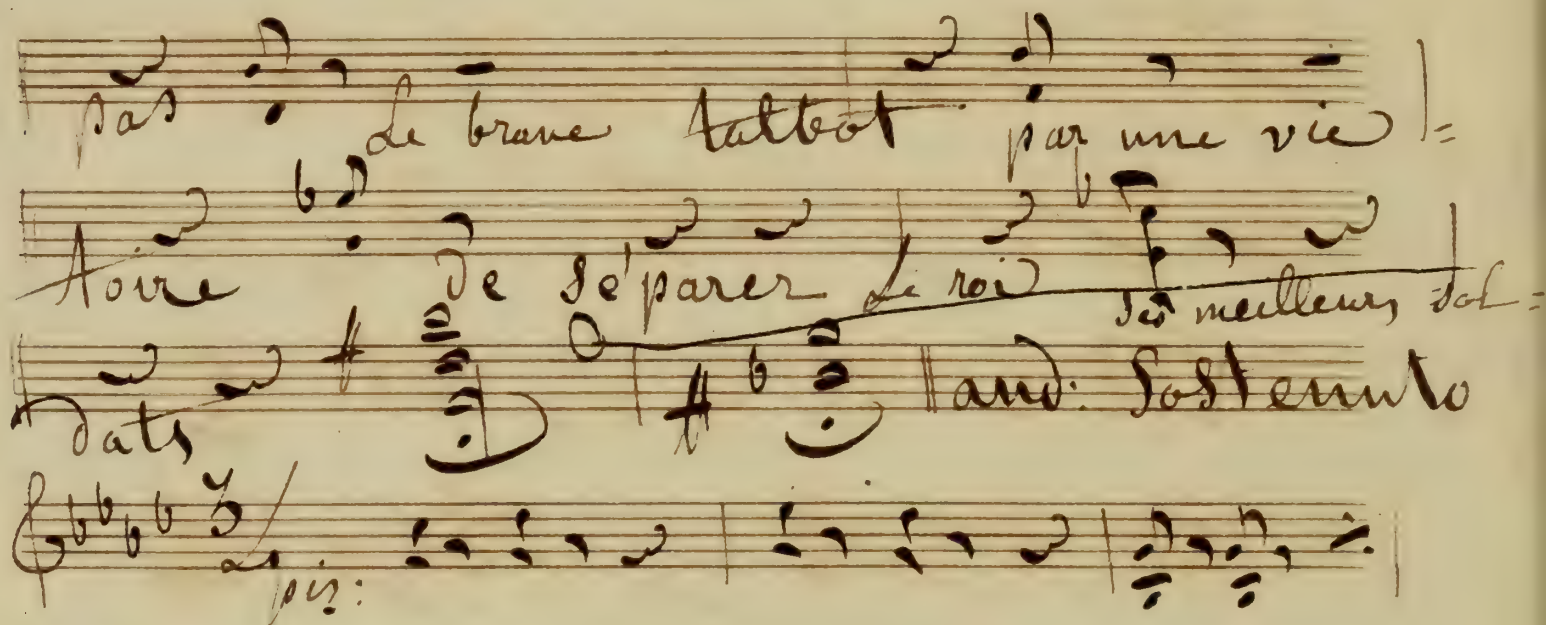 pas Le brave talbot par une vic =
toire de séparer Le roi des meilleurs sol =
dats and: Sostenuto
3
4
piz: